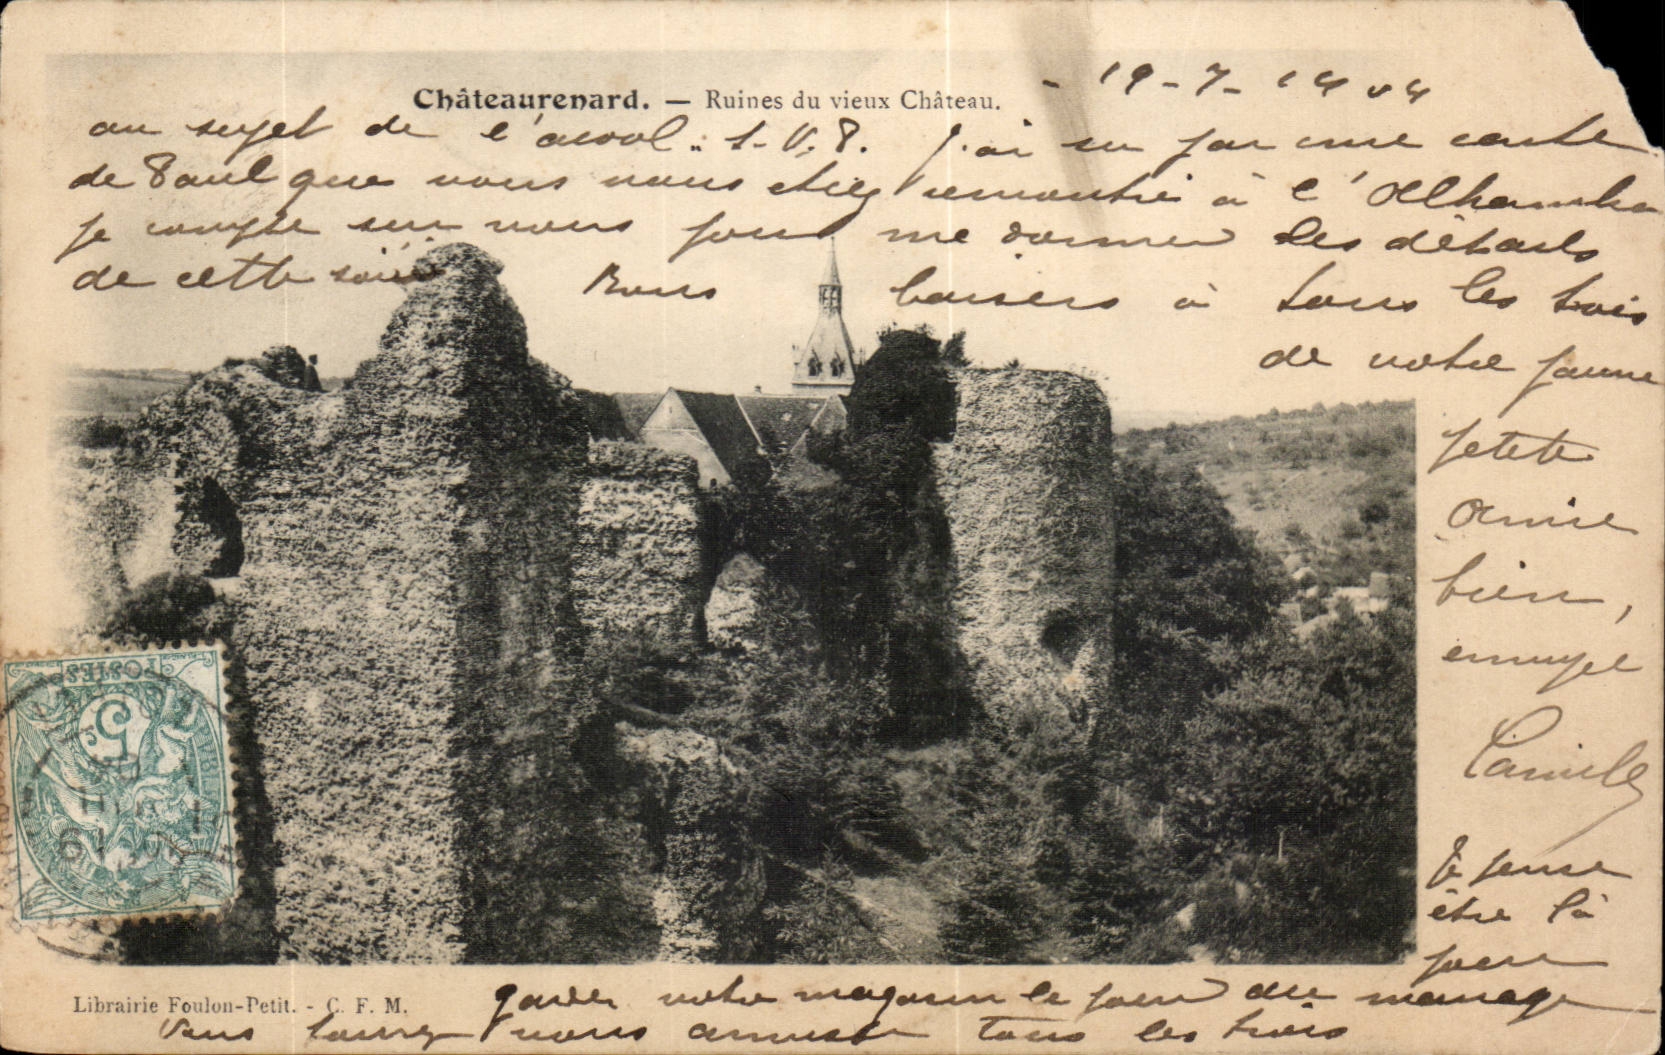 Châteaurenard. — Ruines du vieux Château.
- 19-7-1904
au sujet de l'alcool: S.V.P. J'ai su par une carte
de Paul que vous vous étiez rencontré à l'Alhambra
je compte sur vous pour me donner des détails
de cette soirée Bons baisers à tous les trois
de votre jeune
petite
amie
bien,
ennuyé
Camille
Je pense
être là
pour
garder votre magasin le jour du mariage
Vous pourrez vous amuser tous les trois
POSTES
5
Librairie Foulon-Petit. - C. F. M.